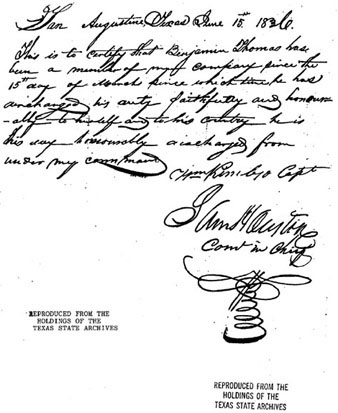 San Augustine, Texas June 15, 1836.
This is to certify that Benjamin Thomas has
been a member of my company since the
15 day of March since which time he has
discharged his duty faithfully and honour
-ably to himself and to his country he is
this day honourably discharged from
under my command
Wm Kimbro Capt
Sam Houston
Comd in Chief
REPRODUCED FROM THE
HOLDINGS OF THE
TEXAS STATE ARCHIVES
REPRODUCED FROM THE
HOLDINGS OF THE
TEXAS STATE ARCHIVES